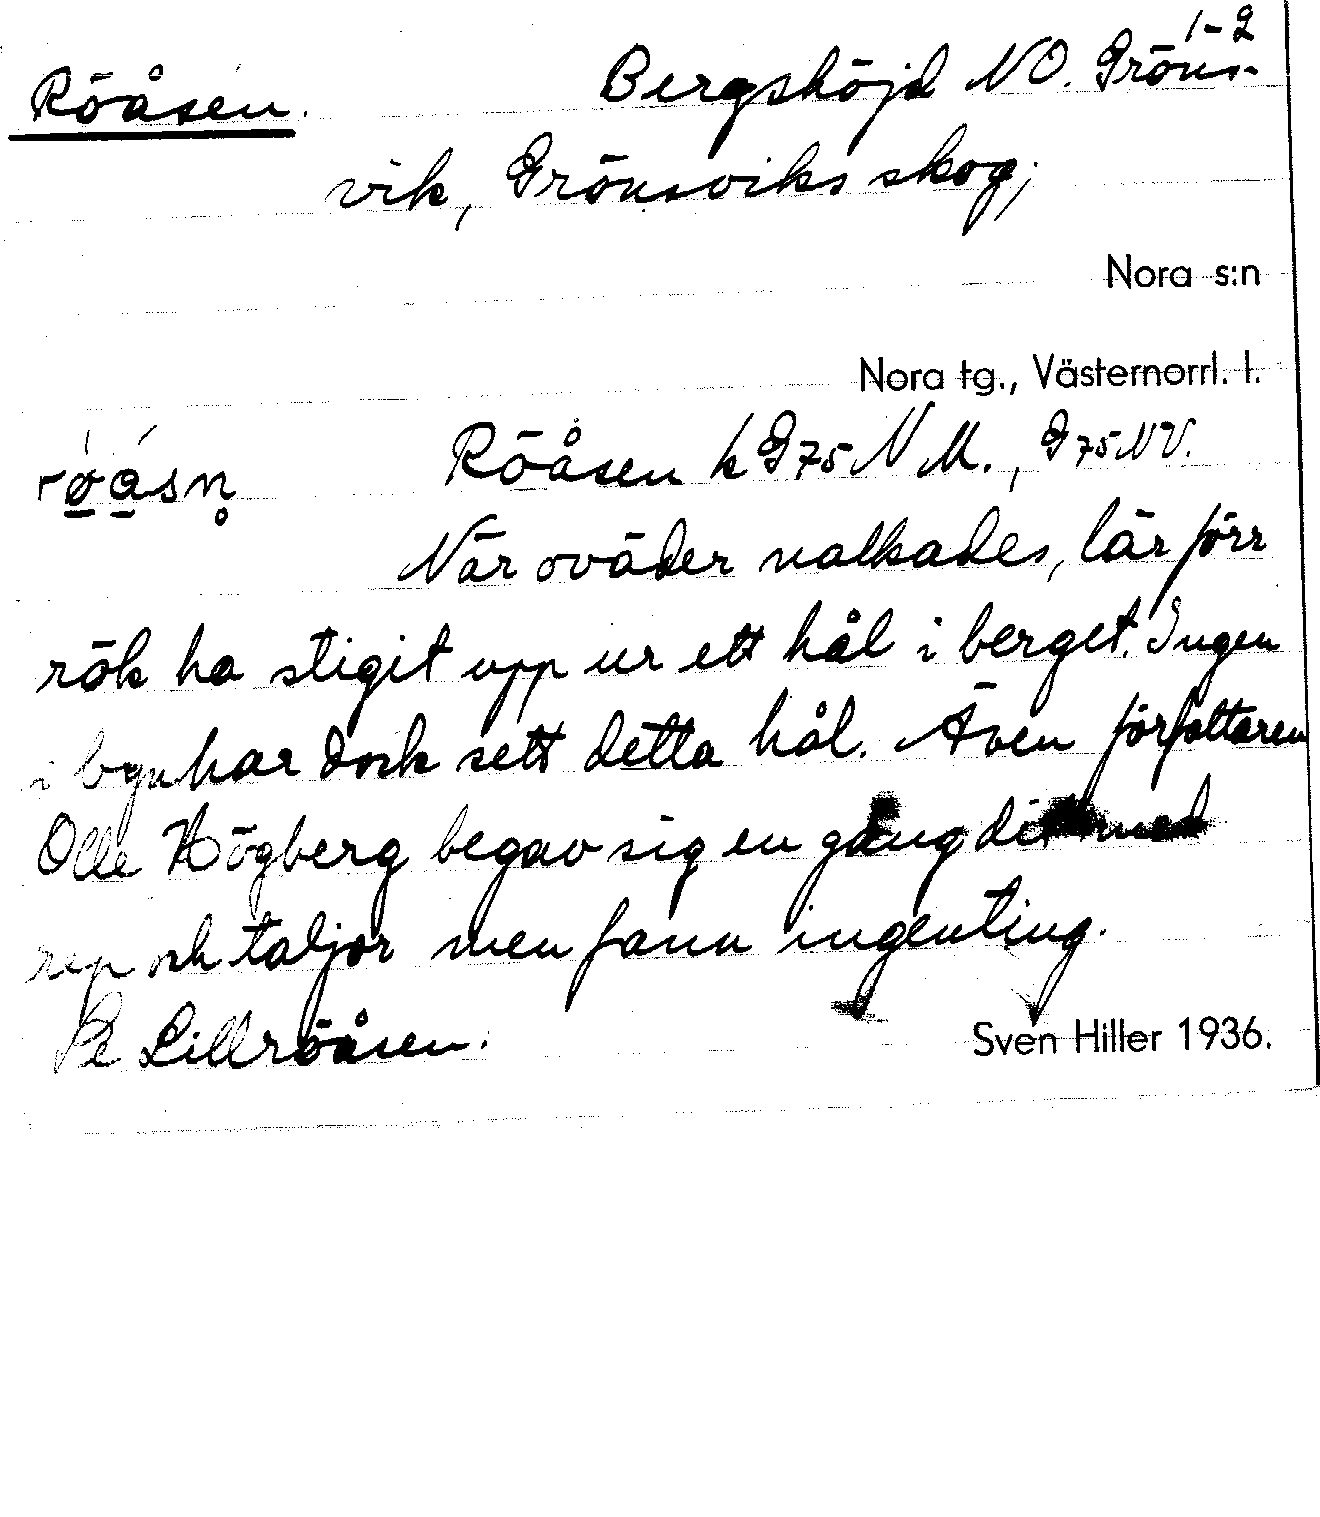 1-2
Röåsen. Bergshöjd NO. Gröns-
vik, Grönsviks skog;
Nora s:n
Nora tg., Västernorrl. l.
røasn̥ Röåsen k G75 NM., G75NV.
När oväder nalkades, lär förr
rök ha stigit upp ur ett hål i berget. Ingen
i byn har dock sett detta hål. Även författaren
Olle Högberg begav sig en gång dit med
rep och taljor men fann ingenting.
Se Lillröåsen.
Sven Hiller 1936.